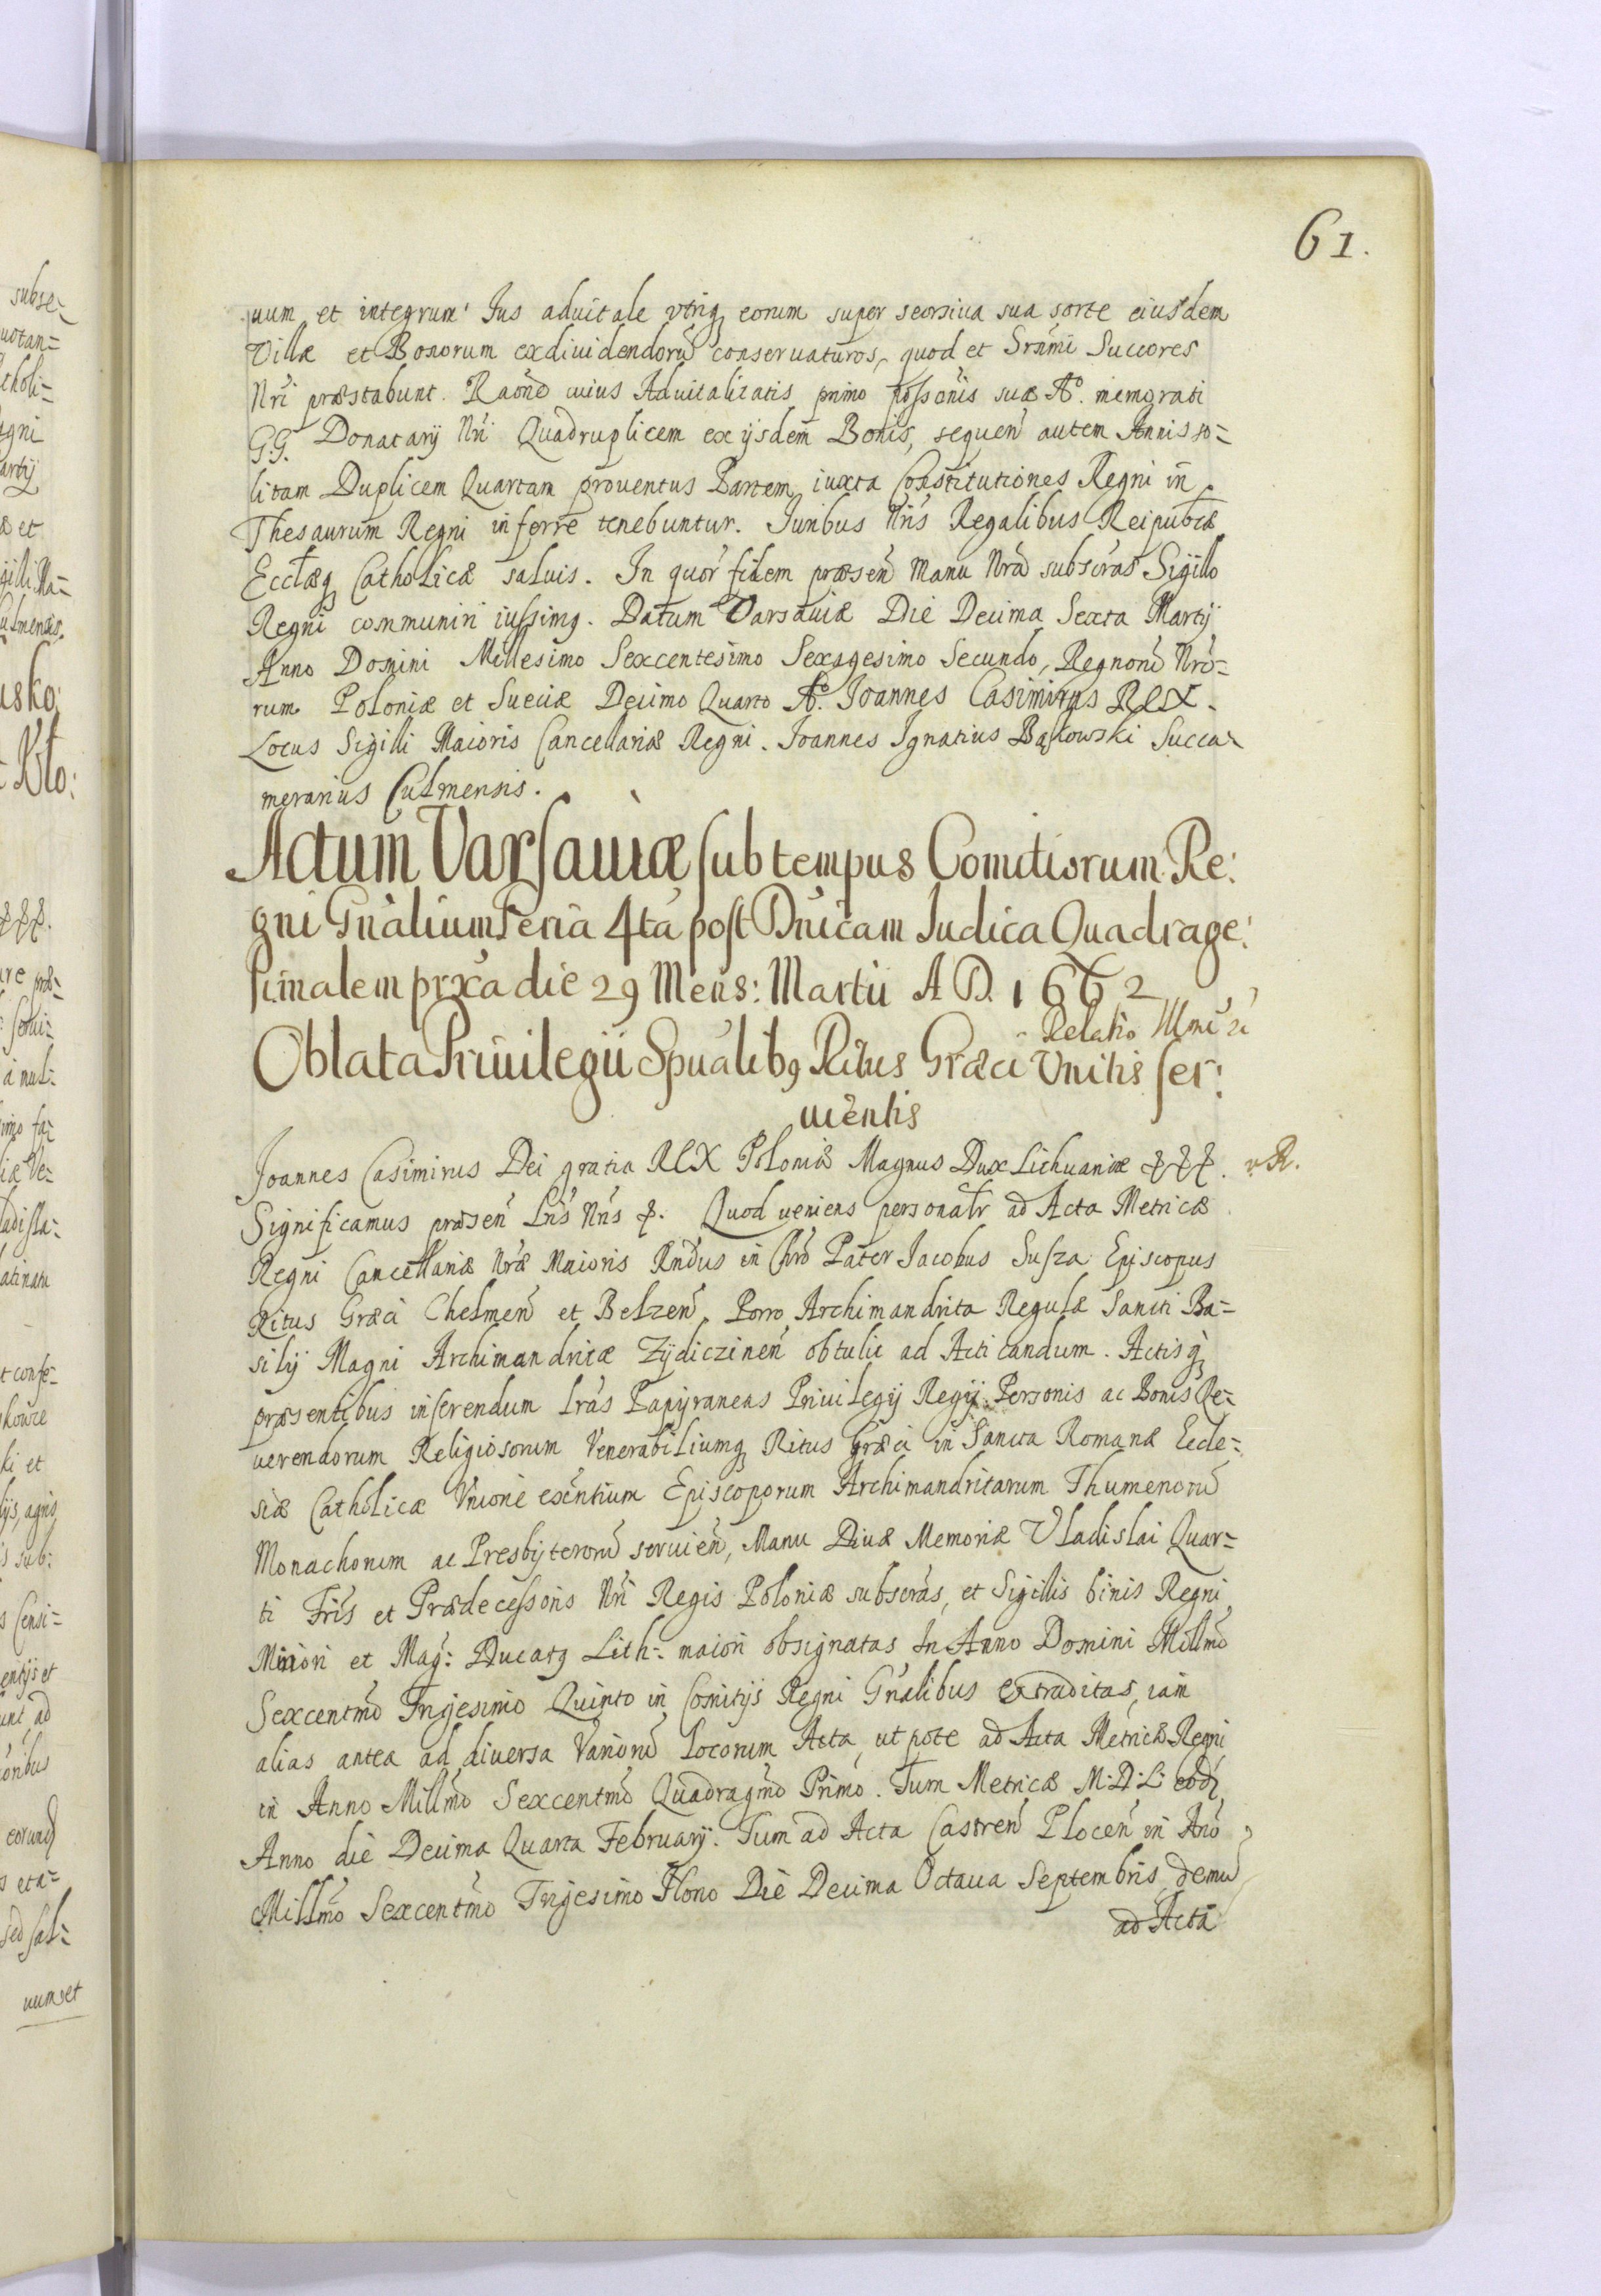 61.
uum et integrum Ius aduitale vtriq eorum super seorsiua sua sorte eiusdem
Villæ et Bonorum exdiuidendorū conseruaturos, quod et Srńmi Succores
Nri præstabunt. Raōne cuius Aduitalitatis primo possōnis suæ Aº. memorati
G.G. Donatarij Nri Quadruplicem ex ijsdem Bonis, sequeñ autem Annis so=
litam Duplicem Quartam prouentus Partem iuxta Constitutiones Regni in
Thesaurum Regni inferre tenebuntur. Iuribus Nris Regalibus Reipublcæ
Ecclæq Catholicæ saluis. In quor fidem præseñ Manu Nrā subscras Sigillo
Regni communiri iussimq. Datum Varsauiæ Die Decima Sexta Martij
Anno Domini Millesimo Sexcentesimo Sexagesimo Secundo, Regnorū Nro=
rum Poloniæ et Sueciæ Decimo Quarto Aº. Ioannes Casimirus REX.
Locus Sigilli Maioris Cancellariæ Regni. Ioannes Ignatius Bąkowski Succa=
merarius Culmensis.
Actum Varsauiæ sub tempus Comitiorum Re:
gni Gnalium Feria 4ta post Dnicam Iudica Quadrage:
simalem prxa die 29 Mens: Martii A D. 1662
Relatio Illmi
Oblata Priuilegii Spualibq Ritus Græci Vnitis ser:
uientis
Joannes Casimirus Dei gratia REX Poloniæ Magnus Dux Lithuaniæ &&&. R.
Significamus præseñ Lris Nris &. Quod ueniens personalr ad Acta Metricæ
Regni Cancellariæ Nræ Maioris Rndus in Chro Pater Jacobus Susza Episcopus
Ritus Græci Chelmeñ et Belzeñ, Porro Archimandrita Regulæ Sancti Ba=
silij Magni Archimandritæ Zÿdiczineñ obtulit ad Acticandum. Actisq
præsentibus inserendum lras Papijraneas Priuilegij Regij Personis ac Bonis Re=
uerendorum Religiosorum Venerabiliumq Ritus Græci in Sancta Romanæ Eccle=
siæ Catholicæ Vnione exentium Episcoporum Archimandritarum Ihumenorū
Monachorum ac Presbijterorū seruieñ, Manu Diuæ Memoriæ Vladislai Quar=
ti Fris et Prædecessoris Nri Regis Poloniæ subscras, et Sigillis binis Regni
Minori et Mag: Ducatq Lith: maiori obsignatas In Anno Domini Millmo
Sexcentmo Trigesimo Quinto in Comitijs Regni Gnalibus extraditas, iam
alias antea ad diuersa Variorū Locorum Acta, ut pote ad Acta Metricæ Regni
in Anno Millmo Sexcentmo Quadragmo Primo. Tum Metricæ M.D.L. eod
Anno die Decima Quarta Februarij. Tum ad Acta Castreñ Ploceñ in Ano
Millmo Sexcentmo Trigesimo Nono Die Decima Octaua Septembris, demū
ad Acta